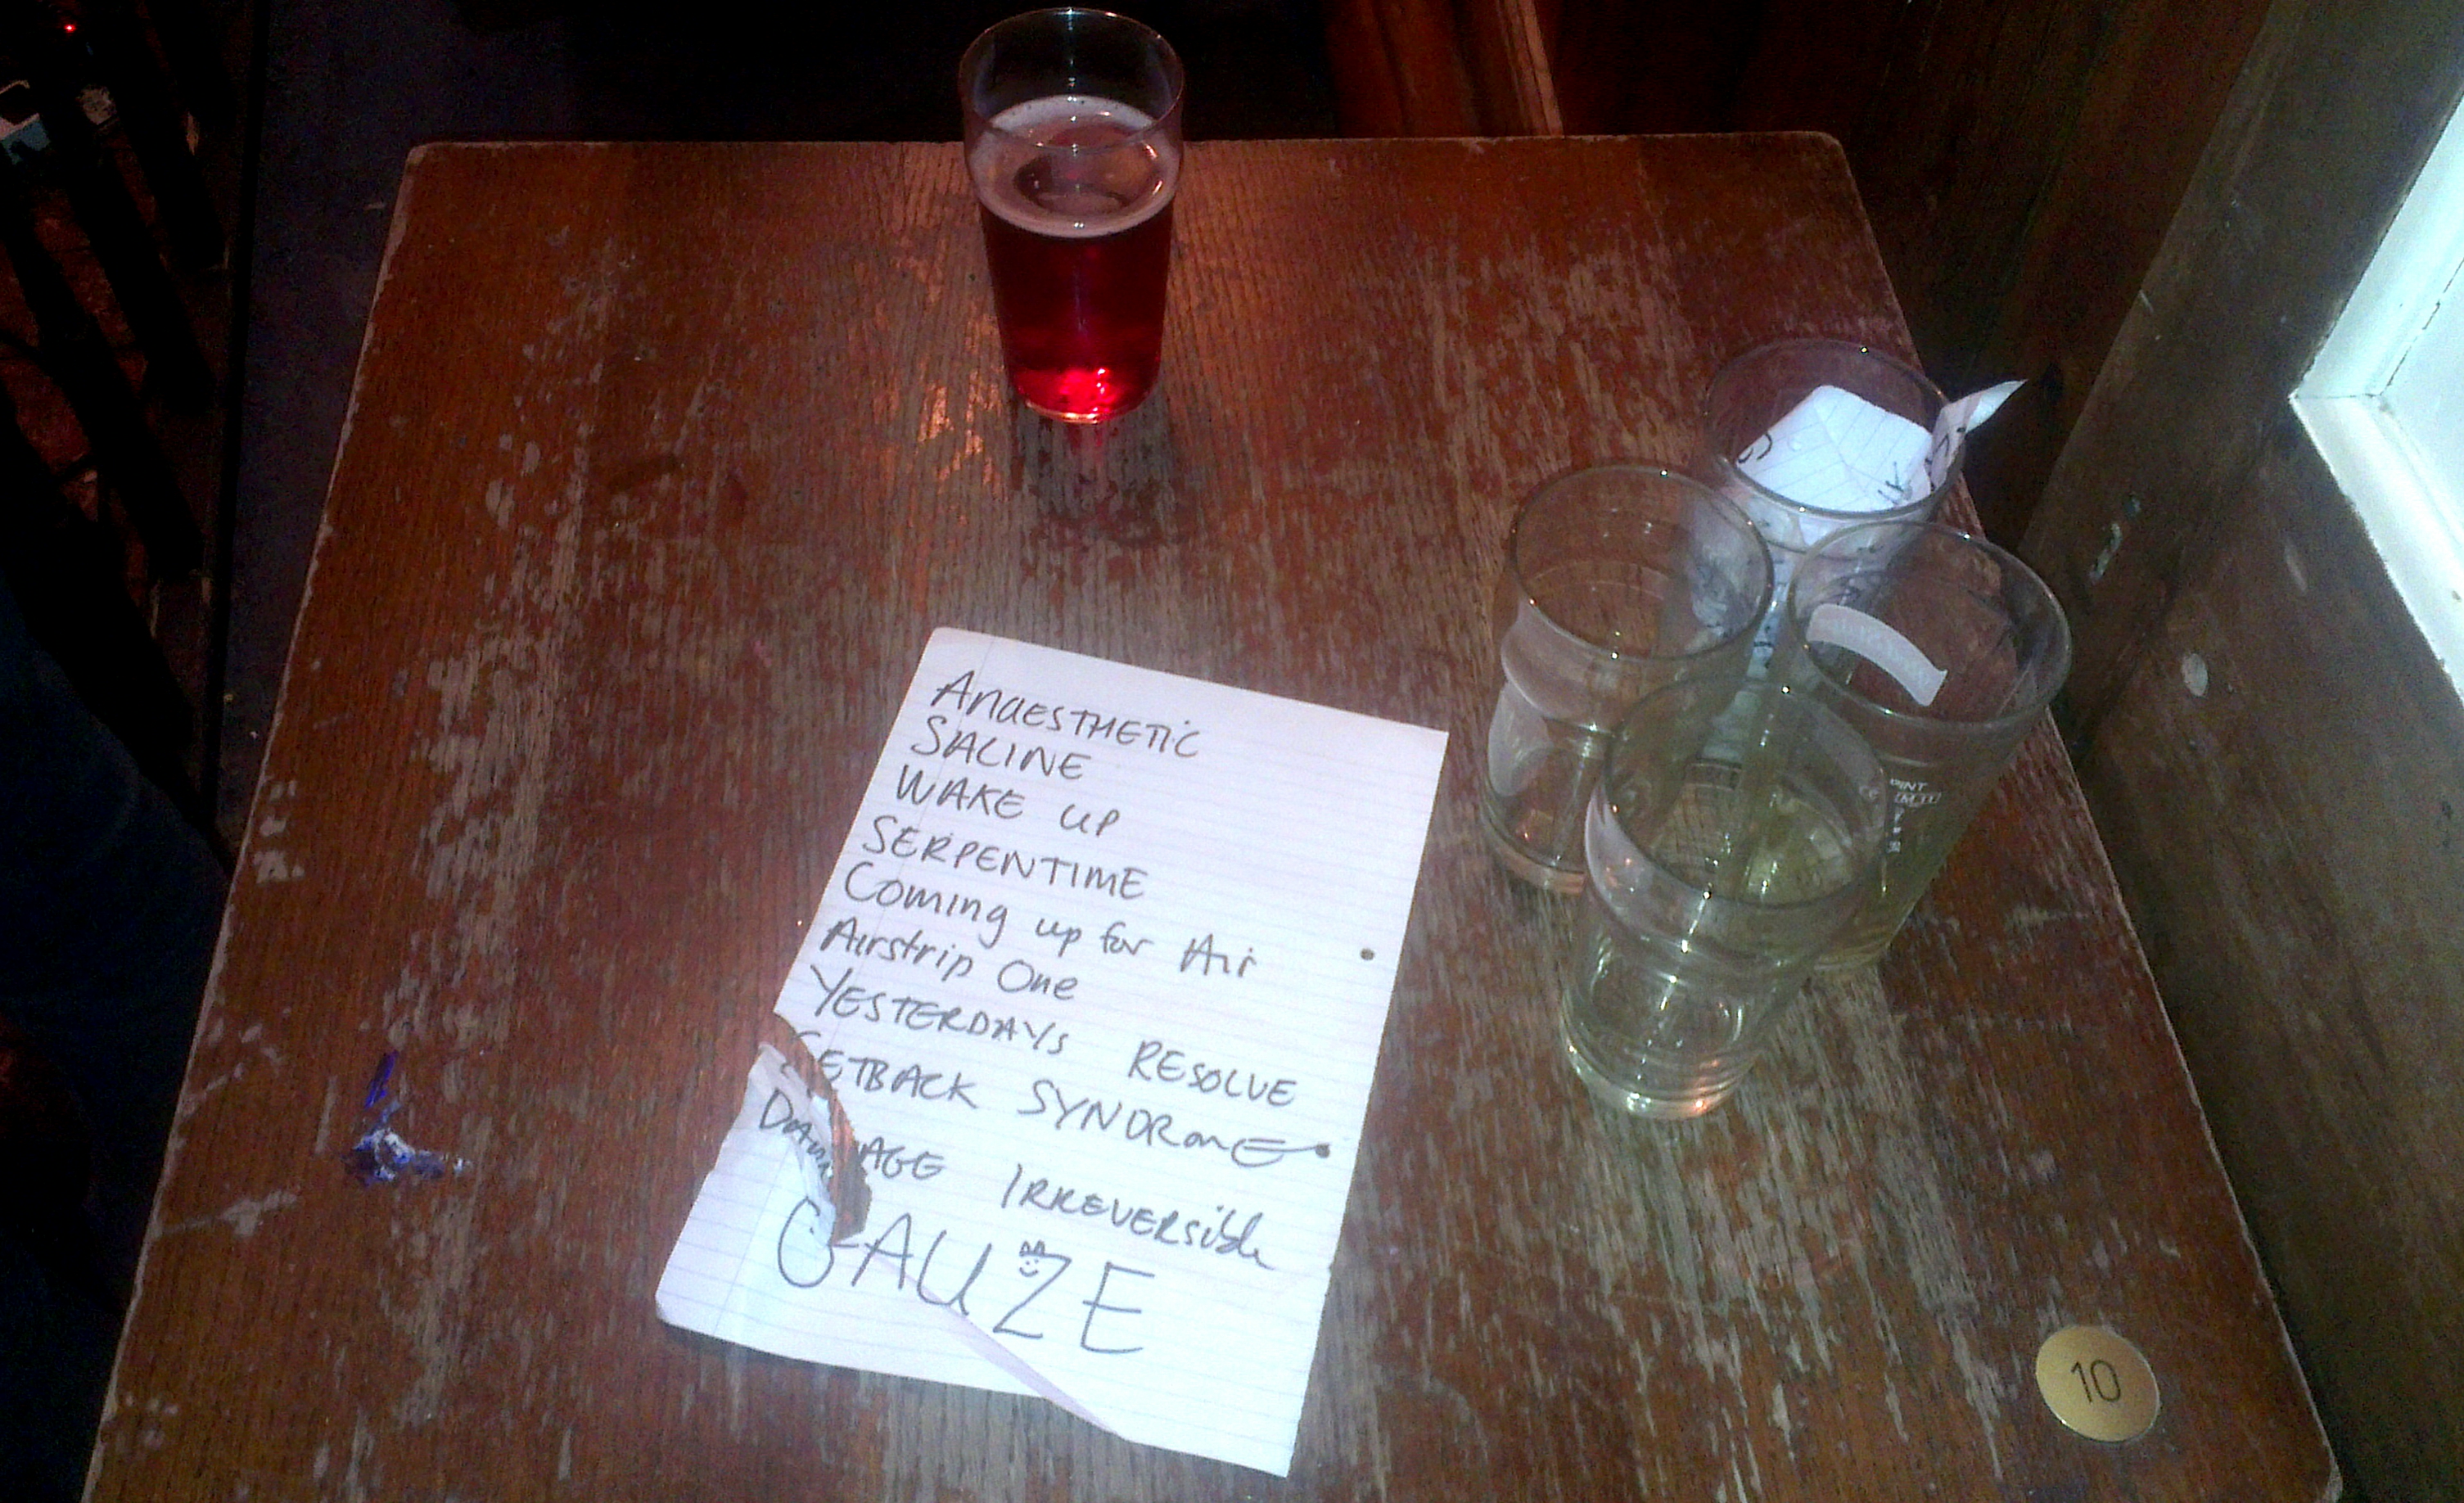 ANAESTHETIC
SALINE
WAKE UP
SERPENTIME
Coming up for Air
Airstrip One
YESTERDAYS RESOLVE
SETBACK SYNDROME
DAMAGE IRREVERSIBLE
GAUZE
PINT
10